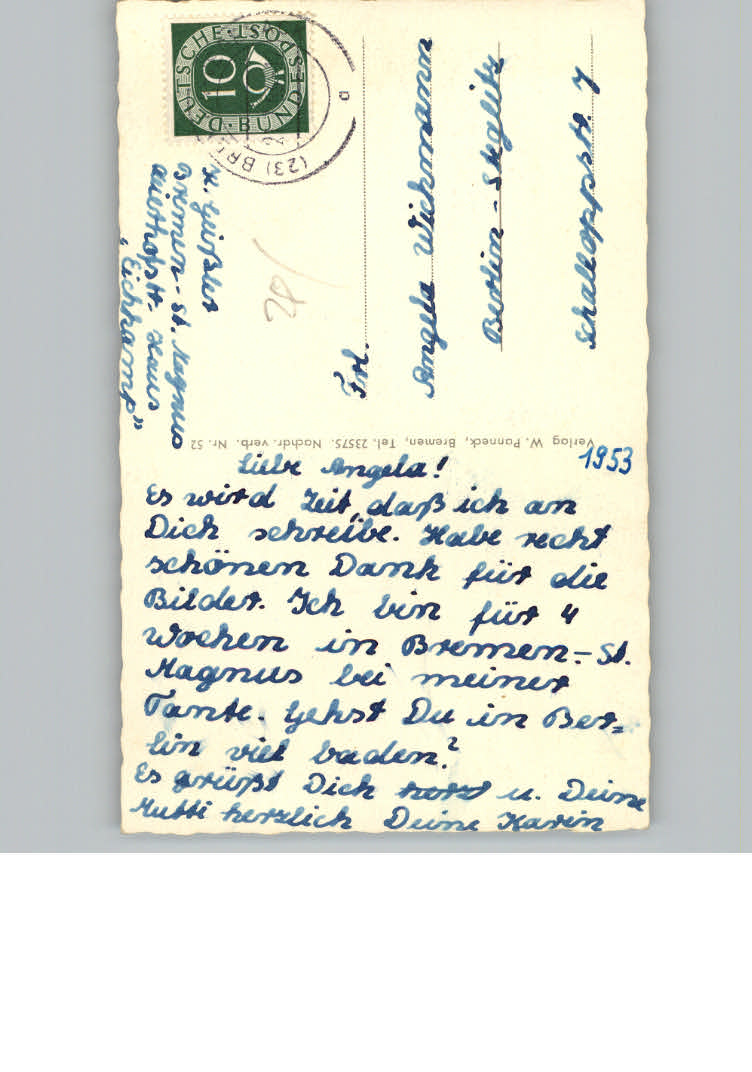 DEUTSCHE BUNDESPOST
10
(23) BRE
a
K. Geißler
Bremen - St. Magnus
Haus
"Eichkamp"
20/
Frl.
Angela Wichmann
Berlin - Steglitz
Schalloppstr. 7
Verlag W. Panneck, Bremen, Tel. 23575. Nachdr. verb. Nr. 52
1953
Liebe Angela!
Es wird Zeit, daß ich an
Dich schreibe. Habe recht
schönen Dank für die
Bilder. Ich bin für 4
Wochen in Bremen - St.
Magnus bei meiner
Tante. Gehst Du in Ber=
lin viel baden?
Es grüßt Dich herzl u. Deine
Mutti herzlich Deine Karin